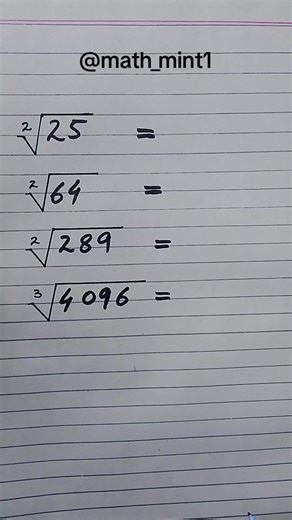 @math_mint1
²√25 =
²√64 =
²√289 =
³√4096 =